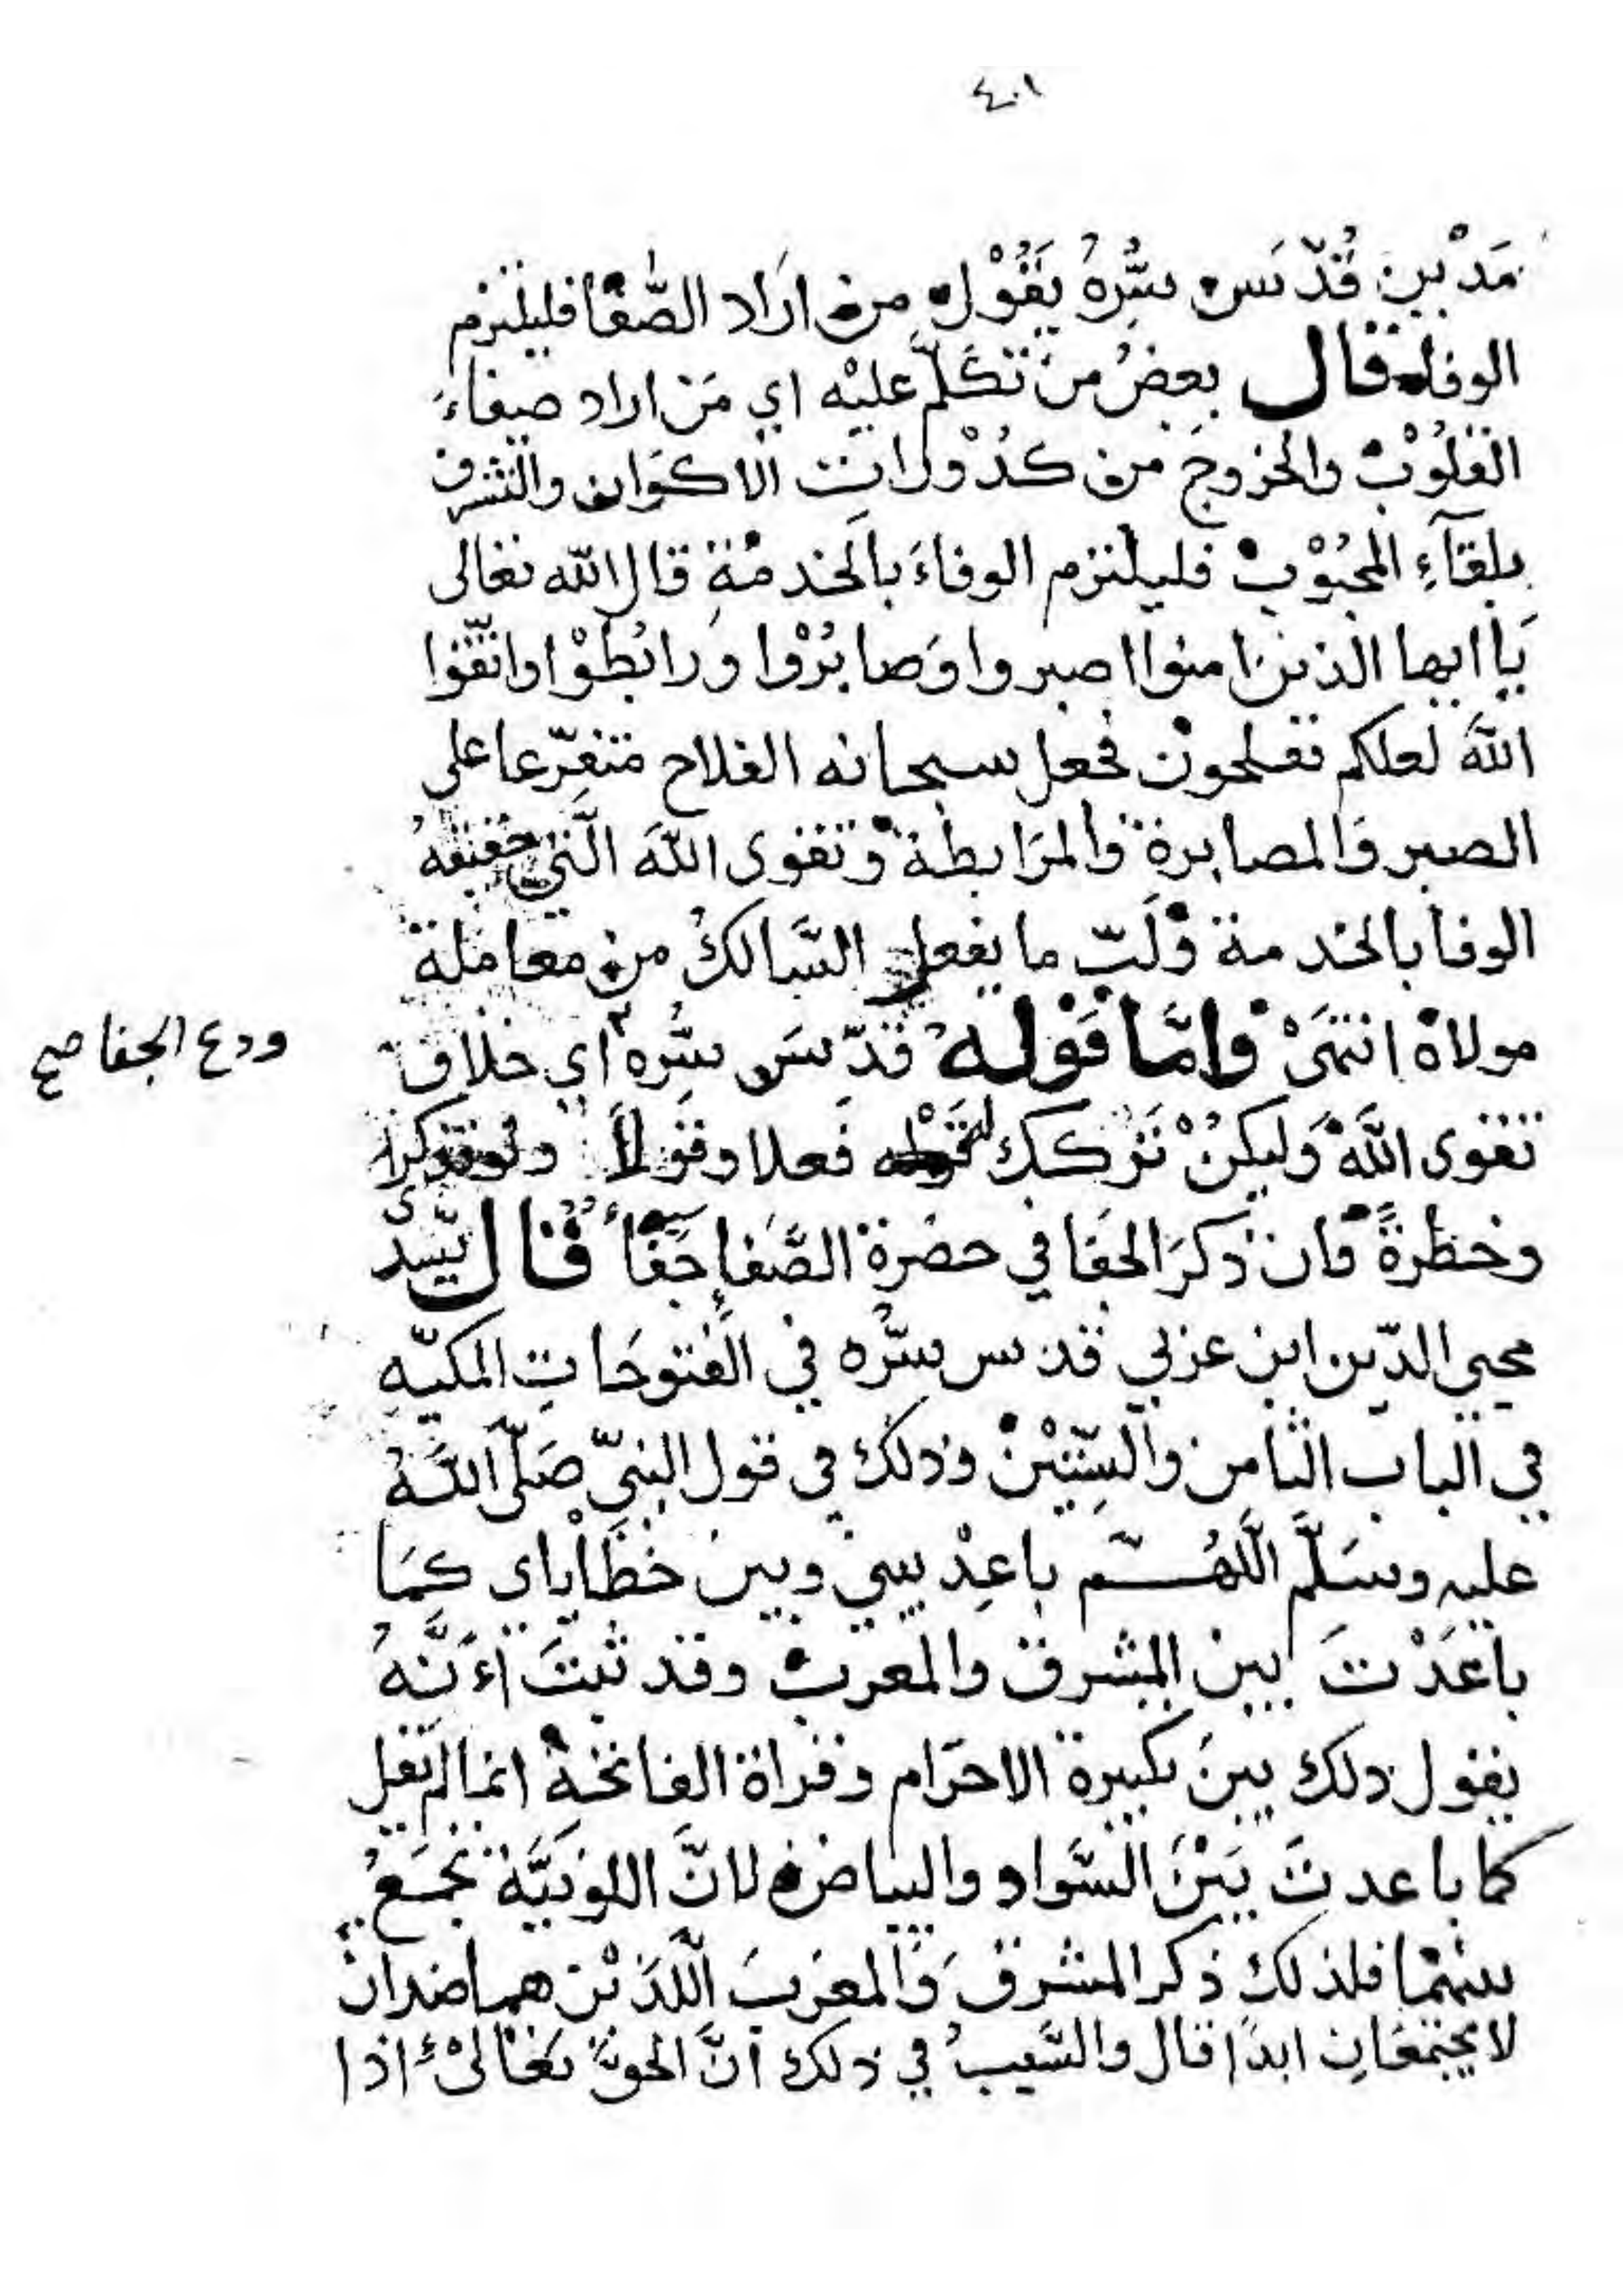 ٤٠١
مَدْين قُدّسَ سِرُّهُ يَقُوْل من اَرَاد الصَّفَا فليلتزم
الوفا قال بعضُ من تكلّم عليْه اي مَن اراد صفاءَ
القلُوْب والخروجَ من كدُوْراتِ الاكوَان والتشرف
بلقآءِ المحبُوْب فليلتزم الوفاءَ بالخدمَةِ قال الله تعالى
يَا ايها الذينَ امنوا اصبروا وَصابرُوْا ورابُطوْا واتقّوا
اللهَ لعلكم تفلحون فجعل سبحانه الفلاح متفرّعا على
الصبر وَالمصابرة والمرَابطة وتقوى اللهَ الَّتي حقيقةُ
الوفا بالخدمة ولَبّ ما يفعل السَّالكُ من معاملة
مولاهُ انتهَىْ وامَّا قوله قدّسَ سرُّه اي خلاف
ودع الجفا صح
تقوى اللهَ وَليكنْ تَركك لتخوطه فَعلا وقَوْلاً ولو
وخطرةً فان ذكرَ الجفا في حضرة الصَّفاءِ جَفَاءُ قال سيّدى
محيي الدّين ابن عربي قدس سرُّه في الفتوحَاتِ المكيّه
في الباب الثامن والسِّتيْنْ وذلك في قول النبيّ صَلّى اللهُ
عليه وسَلَّم اللهُـــمّ باعِدْ بيني وبين خطَاياي كمَا
باعَدْتَ بين المشرق والمغرب وقد ثبتَ اءَنَّهُ
يقول ذلك بينَ تكبيرة الاحرَام وقراة الفاتحةِ انما لم يقل
كما باعدتَ بَيْنَ السَّواد والبياض لانَّ اللونيَّة تجمَعُ
بينهُما فلذلك ذكر المشرقَ والمغربَ اللَّذيْن هما ضدان
لا يجتمعَانِ ابدًا قال والسَّببُ في ذلك انَّ الحق تعَالىْ اذا